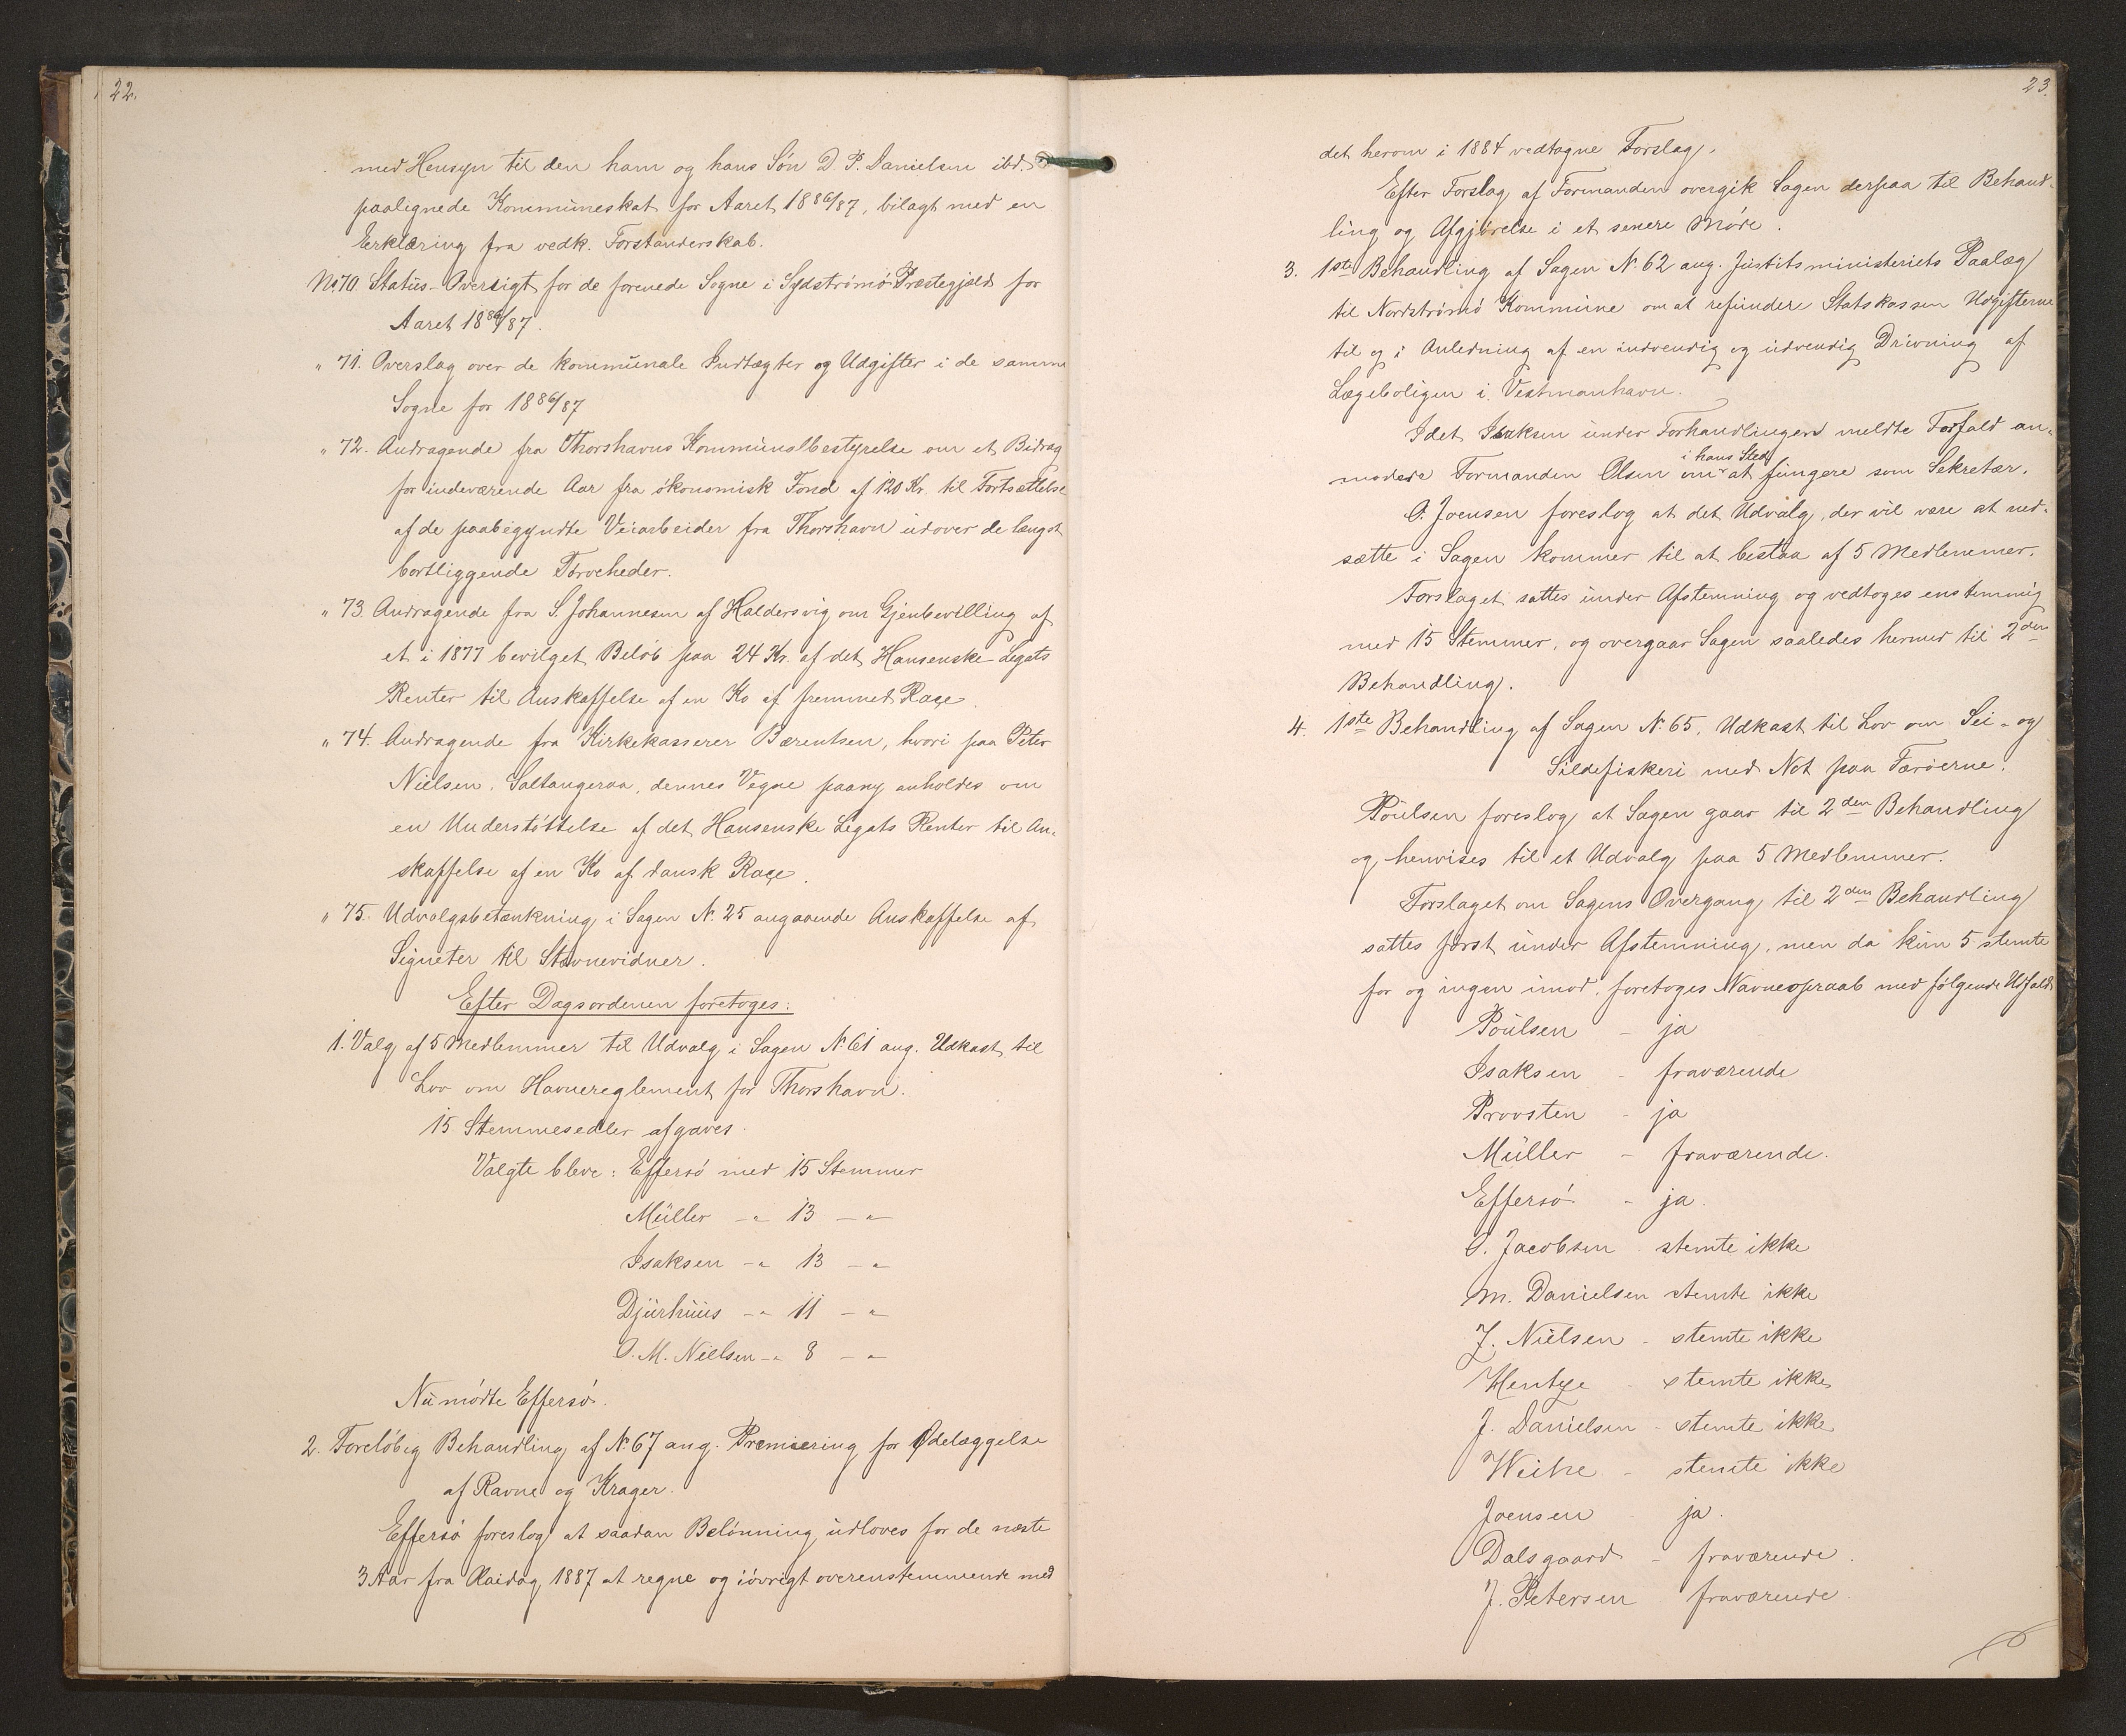 22.
med Hensyn til den ham og hans Søn D. P. Danielsen ibd.
paalignede Kommuneskat for Aaret 1886/87, bilagt med en
Erklæring fra vedk. Forstanderskab.
No 70. Status-Oversigt for de forenede Sogne i Sydstrømø Præstegjæld for
Aaret 1886/87.
" 71. Overslag over de kommunale Indtægter og Udgifter i de samme
Sogne for 1886/87
" 72. Andragende fra Thorshavns Kommunalbestyrelse om et Bidrag
for indeværende Aar fra økonomisk Fond af 120 Kr. til Fortsættelse
af de paabegyndte Veiarbeider fra Thorshavn udover de længst
bortliggende Tørveheder.
" 73. Andragende fra S. Johannesen af Haldersvig om Gjenbevilling af
et i 1877 bevilget Beløb paa 24 Kr. af det Hansenske Legats
Renter til Anskaffelse af en Ko af fremmed Race.
" 74. Andragende fra Kirkekasserer Bærentsen, hvori paa Peter
Nielsen, Saltangeraa, dennes Vegne paany anholdes om
en Understøttelse af det Hansenske Legats Renter til An-
skaffelse af en Ko af dansk Race.
" 75. Udvalgsbetænkning i Sagen No. 25 angaaende Anskaffelse af
Signeter til Stævnevidner.
Efter Dagsordenen foretoges:
1. Valg af 5 Medlemmer til Udvalg i Sagen No. 61 ang. Udkast til
Lov om Havnereglement for Thorshavn.
15 Stemmesedler afgaves.
Valgte bleve: Effersø med 15 Stemmer
Müller -"- 13 -"-
Isaksen -"- 13 -"-
Djurhuus -"- 11 -"-
O. M. Nielsen -"- 8 -"-
Nu mødte Effersø.
2. Foreløbig Behandling af No. 67 ang. Præmiering for Ødelæggelse
af Ravne og Krager.
Effersø foreslog at saadan Belønning udloves for de næste
3 Aar fra Olaidag 1887 at regne og iøvrigt overenstemmende med
23.
det herom i 1884 vedtagne Forslag.
Efter Forslag af Formanden overgik Sagen derpaa til Behand-
ling og Afgjørelse i et senere Møde.
3. 1ste Behandling af Sagen No. 62 ang. Justitsministeriets Paalæg
til Nordstrømø Kommune om at refundere Statskassen Udgifterne
til og i Anledning af en indvendig og udvendig Drivning af
Lægeboligen i Vestmanhavn.
Idet Isaksen under Forhandlingen meldte Forfald an-
modede Formanden Olsen om i hans Sted at fungere som Sekretær.
O. Joensen foreslog at det Udvalg, der vil være at ned-
sætte i Sagen kommer til at bestaa af 5 Medlemmer.
Forslaget sattes under Afstemning og vedtoges enstemmig
med 15 Stemmer, og overgaar Sagen saaledes hermed til 2den
Behandling.
4. 1ste Behandling af Sagen No. 65, Udkast til Lov om Sei- og
Sildefiskeri med Not paa Færøerne.
Poulsen foreslog at Sagen gaar til 2den Behandling
og henvises til et Udvalg paa 5 Medlemmer.
Forslaget om Sagens Overgang til 2den Behandling
sattes først under Afstemning, men da kun 5 stemte
for og ingen imod, foretoges Navneopraab med følgende Udfald
Poulsen - ja
Isaksen - fraværende
Provsten - ja
Müller - fraværende.
Effersø - ja.
O. Jacobsen - stemte ikke
M. Danielsen stemte ikke
J. Nielsen - stemte ikke
Hentze - stemte ikke
J. Danielsen - stemte ikke
Weihe - stemte ikke
Joensen - ja.
Dalsgaard - fraværende.
J. Petersen fraværende.